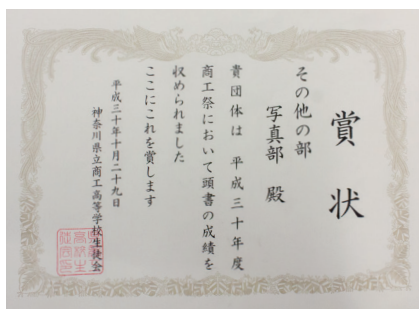 賞状
その他の部
写真部 殿
貴団体は 平成三十年度
商工祭において頭書の成績を
収められました
ここにこれを賞します
平成三十年十月二十九日
神奈川県立商工高等学校生徒会